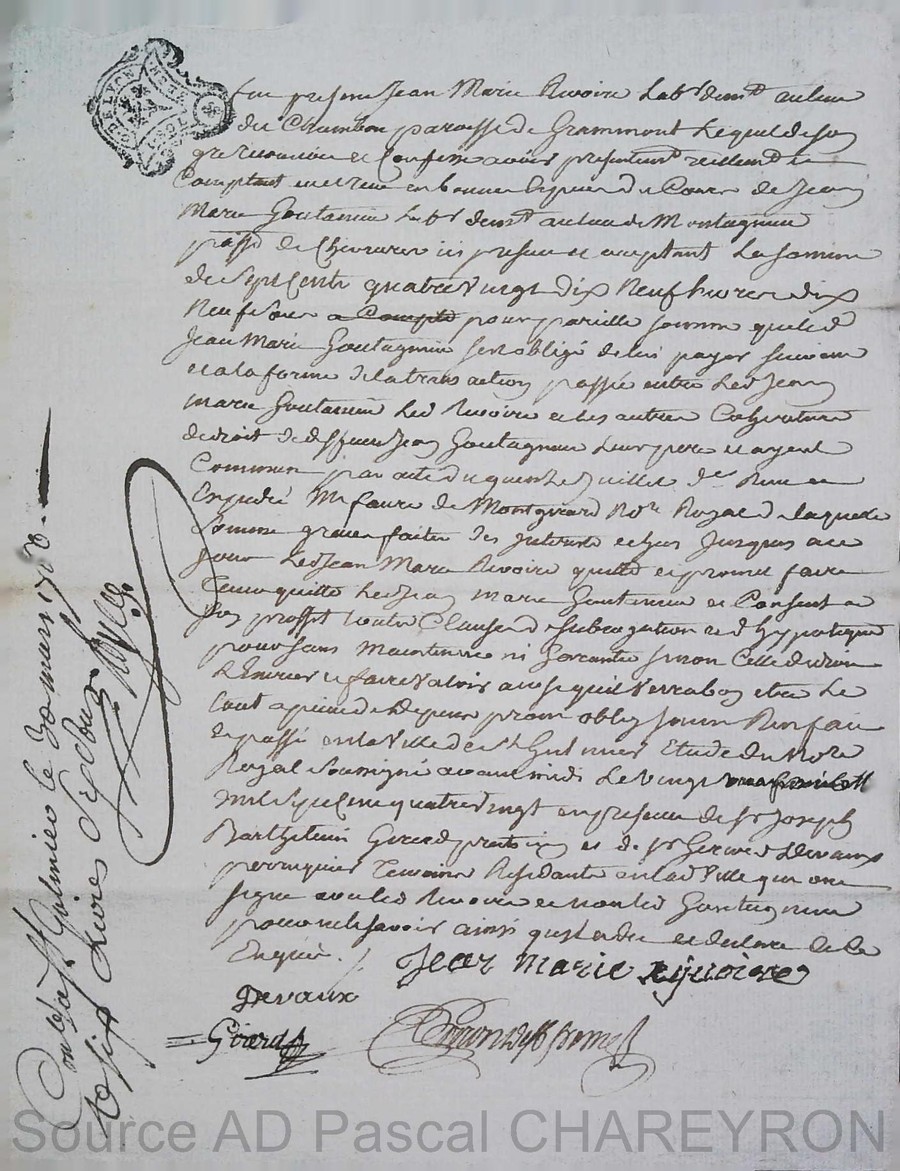 fut present Jean Marie Rivoire Lab.r dem.t au lieu
du Chambon paroisse de Grammont Lequel de son
gre reconnu et Confesse avoir presentem.t reellem.t et
Comptant eu et receu en bonnes Especes du Cours de Jean
Marie Goutagnieu Lab.r dem.t au lieu de Montagnieu
p.sse de Chevrieres ici present et acceptant La somme
de Sept Cents quatre vingt dix Neuf livres dix
Neuf Sous a Compte pour pareille somme que led.
Jean Marie Goutagnieu s'est obligé de lui payer suivant
et a la forme de la transaction passée entre Led Jean
marie Goutagnieu Led Rivoire et les autres Cohéritiers
de droit de deffunt Jean Goutagnieu Leur pere et ayeul
Commun par acte du quinze Juillet der. Reçu et
Expedié M.e faure de Montgirard No.re Royal de laquelle
Somme ensemble des interets echus Jusques a ce
jour Led Jean Marie Rivoire quitte et promet faire
Tenir quitte Led Jean Marie Goutagnieu et Consent a
son proffit toutes Clauses de subrogation et d'hypoteque
pour sans Maintenue ni Garantie sinon Celle du
et faire valoir ainsi qu'il verra bon etre Le
tout a peine de depens prom oblig soum Renon fait
et passé en la Ville de S.t Galmier Etude du No.re
Royal Soussigné avant midi Le vingt
mil sept cent quatre vingt en presence de s.r Joseph
Barthelemi Girard praticien et de s.r Devaux
perruquier Temoins Residants en lad Ville qui ont
signé avec led Rivoire et non led Goutagnieu
pour ne le savoir ainsi qu'il a dit et declaré de ce
Enquis ./.
Jean Marie Rivoire
Devaux
Girard
Conlé a S.t Galmier le 30 mars 1780
Reçu six Livres
Source AD Pascal CHAREYRON